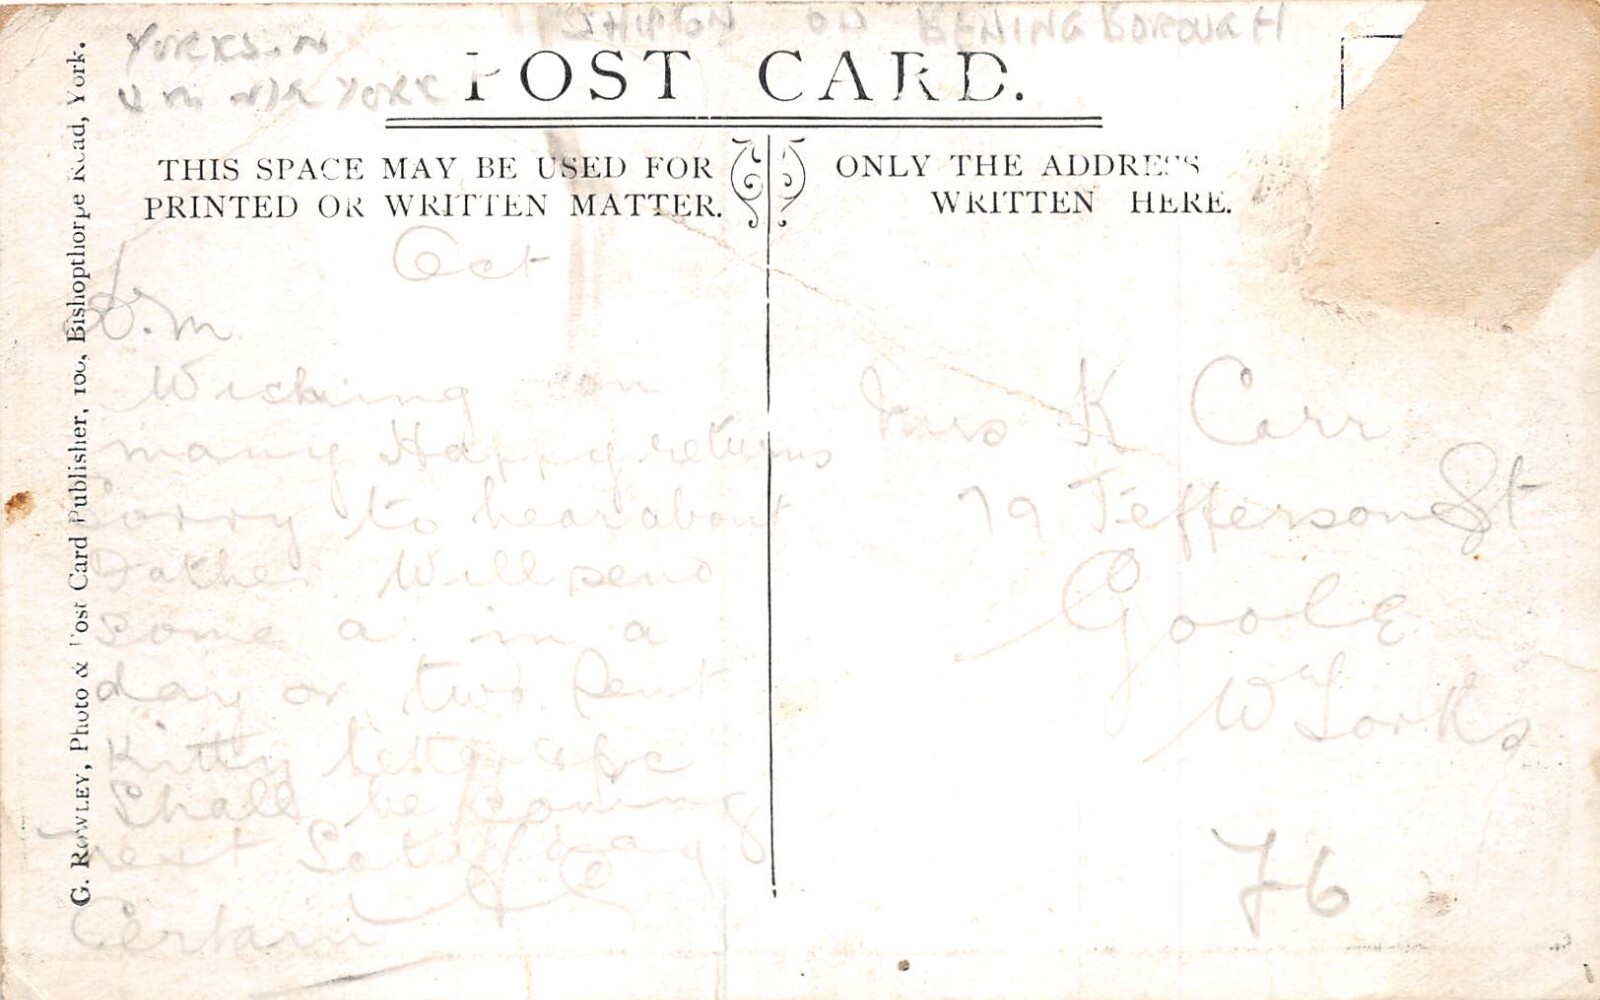 SHIPTON ON BENINGBOROUGH
YORKS. N
NR YORK
POST CARD.
THIS SPACE MAY BE USED FOR
PRINTED OR WRITTEN MATTER.
ONLY THE ADDRESS
WRITTEN HERE.
G. ROWLEY, Photo & Post Card Publisher, 100, Bishopthorpe Road, York.
Oct
D.M.
Wishing
many Happy returns
Sorry to hear about
Father. Will send
some a. in a
day or two.
Kitty letter
Shall be coming
next Saturday
Certain
Mrs K Carr
79 Jefferson St
Goole
W Yorks
76